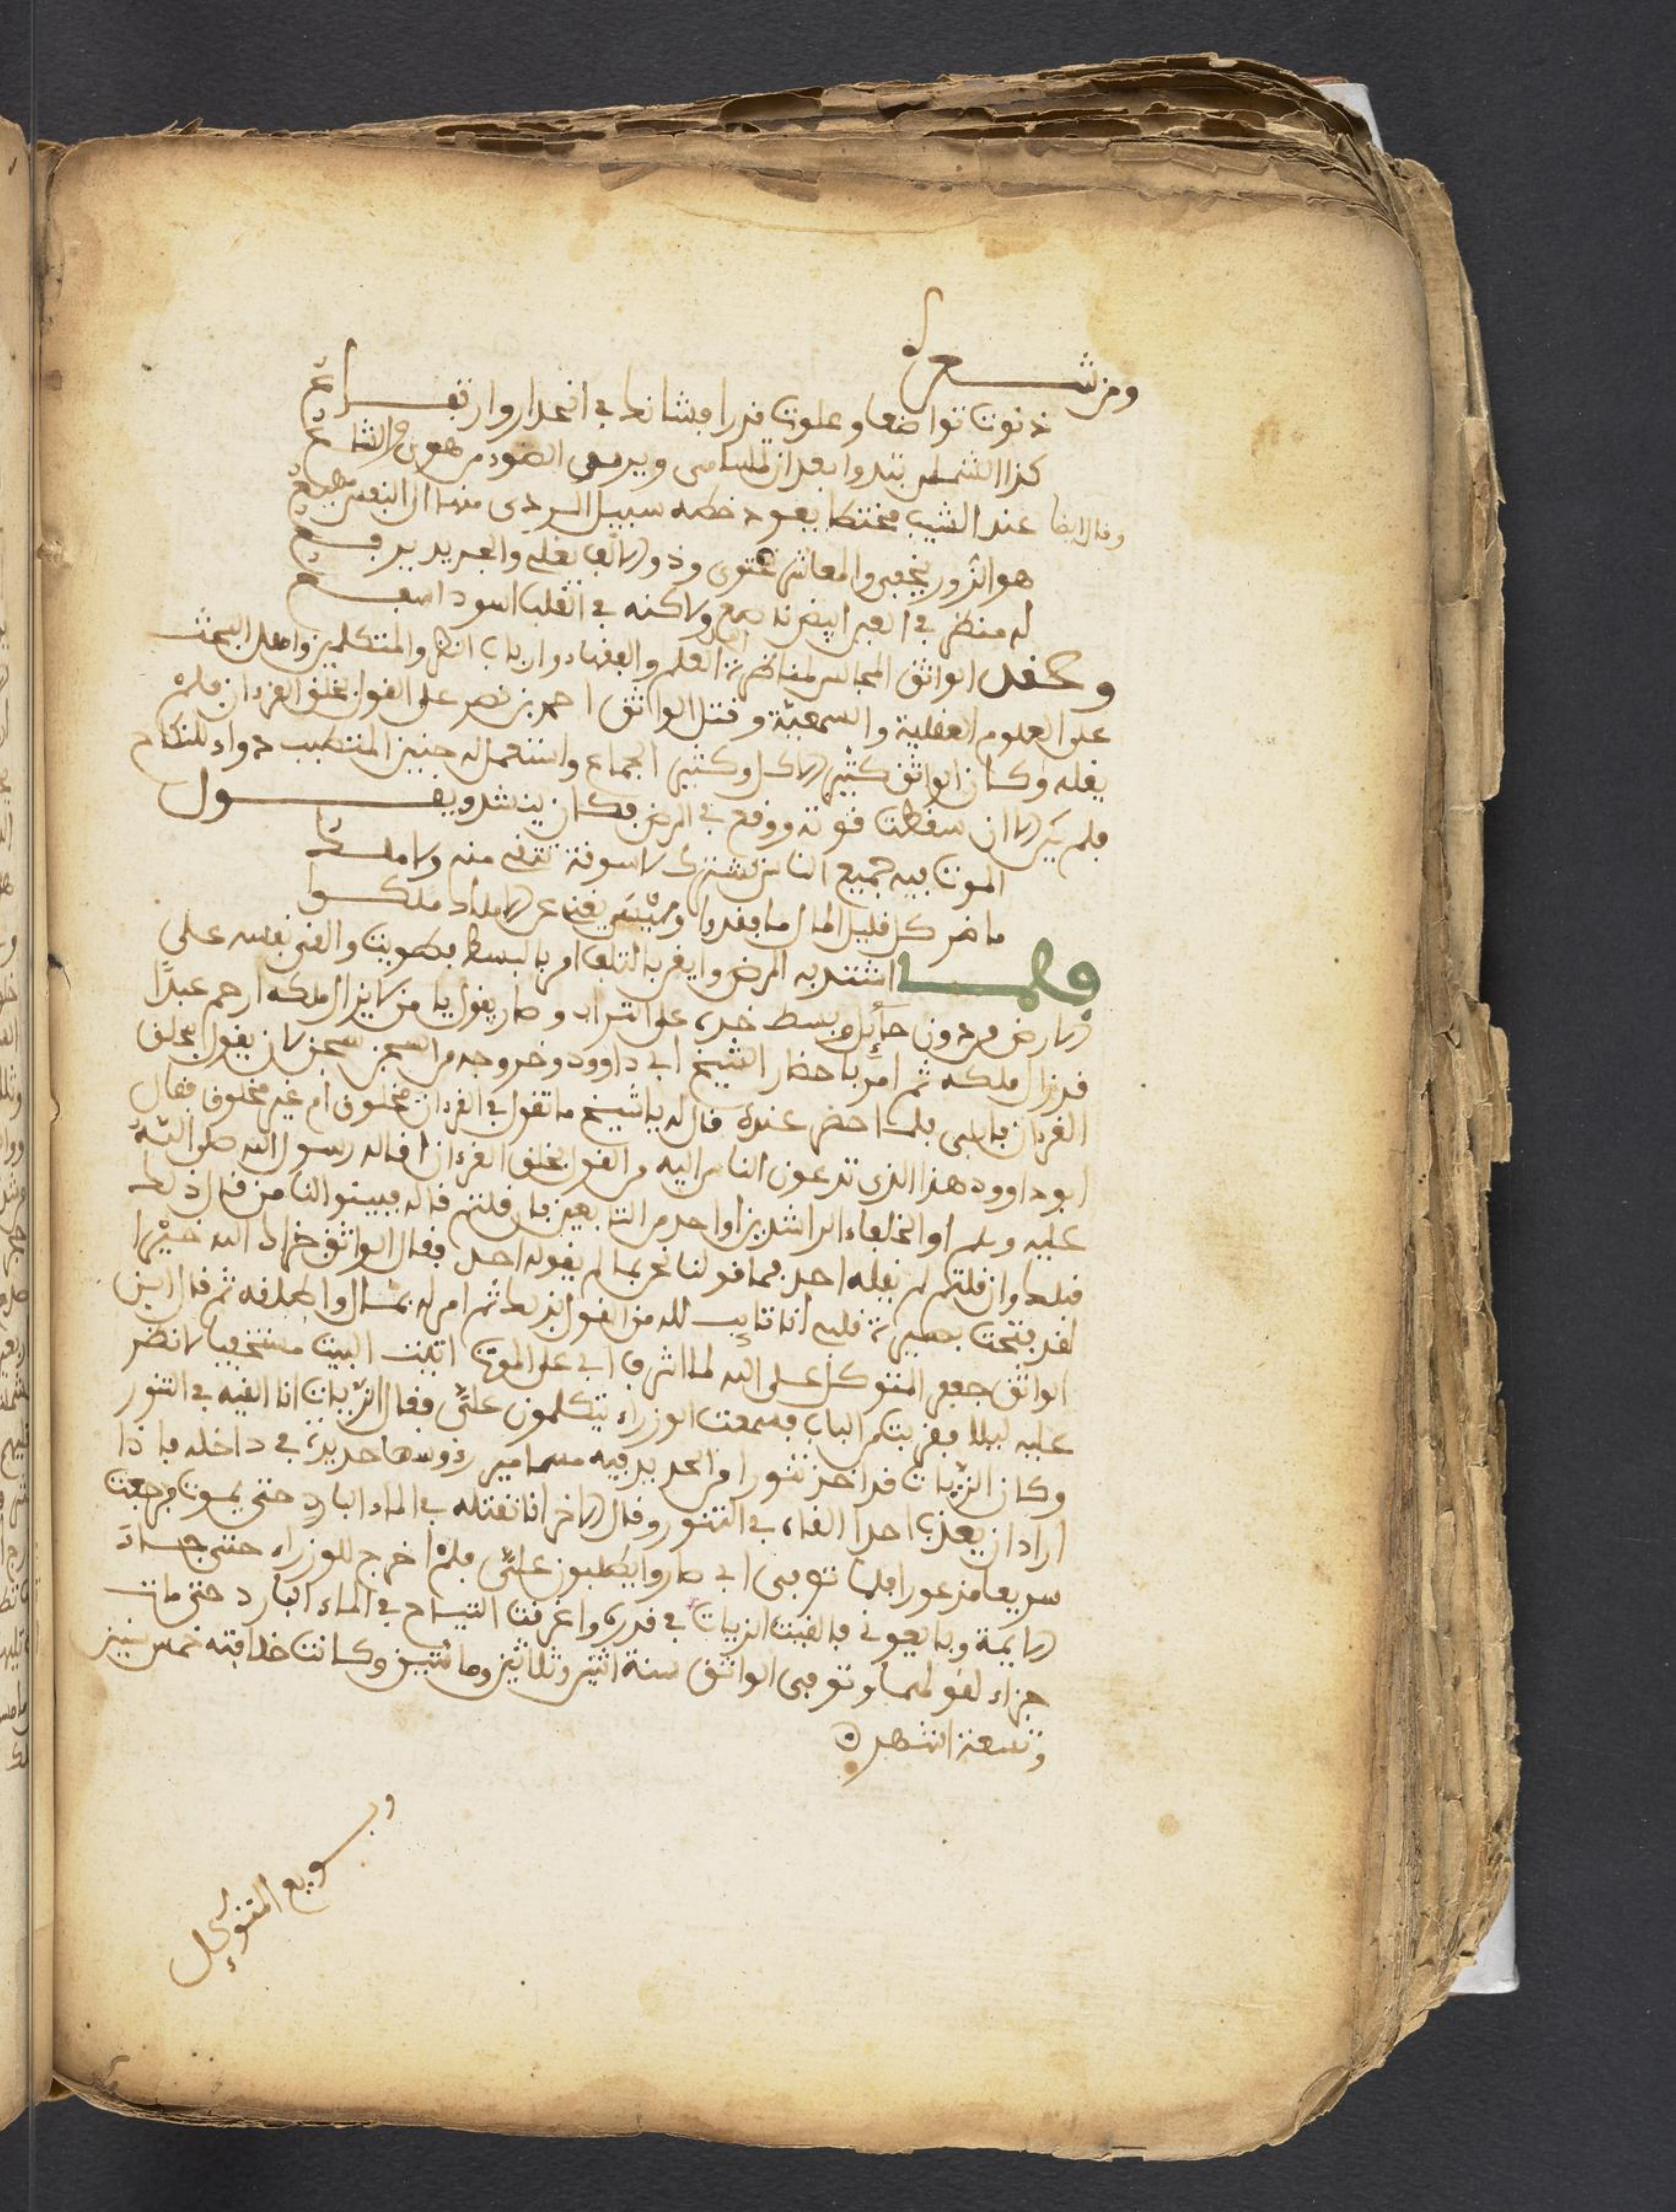 ومن شعره
دنوت تواضعا وعلوت قدرا فشانك في انحدار وارتفاع
كذا الشمس تبدوا بعد ان للسامى ويدنوا الضوء من هون والشعاع
وقال ايضا عند الشيب مختطا بفود خطه سبيل الردى منها الى النفس مهيع
هو الزور يجفى والمعاشر يجتوى وذو الالف يقلى والجديد يرقع
له منظر في العين ابيض ناصع ولاكنه في القلب اسود اسفع
وعقد الواثق المجالس لمناظرة اهل العلم والفقهاء وارباب النظر والمتكلمين واهل البحث
على العلوم العقلية والسمعية وقتل الواثق احمد بن نصر على القول بخلق القرءان فلم
يقله وكان الواثق كثير الاكل وكثير الجماع واستعمل له حنين المتطبب دواء للنكاح
فلم ير الا ان سقطت قوته ووقع في المرض فكان ينشد ويقول
الموت فيه جميع الناس تشترك لا سوقة تبقى منه ولا ملك
ما ضر كل قليل المال ما فقدوا وليس يغنى عن الاملاك ما ملكوا
فلما اشتد به المرض وايقن بالتلف امر بالبسط فطويت والقى نفسه على
الارض من دون حآئل وبسط خده على التراب وصار يقول يا من لا يزال ملكه ارحم عبدا
قد زال ملكه ثم امر باحضار الشيخ ابى داوود وخروجه من السجن سجن لان يقول بخلق
القرءان فابى فلما حضر عنده قال له يا شيخ ما تقول في القرءان مخلوق ام غير مخلوق فقال
ابو داوود هذا الذى تدعون الناس اليه من القول بخلق القرءان اقاله رسول الله صلى الله
عليه وسلم او الخلفاء الراشدين او احد من التابعين فان قلتم قاله فبينوا لنا من قال ذلك
قبلك وان قلتم لم يقله احد فما قولنا نحن بما لم يقوله احد فقال الواثق جزاك الله خيرا
لقد فتحت بصيرة قلبى انا تايب لله من القول بذلك ثم امر له بمال واطلقه ثم قال ابن
الواثق جعفر المتوكل على الله لما اشرف ابي على الموت اتيت البيت مستخفيا لانظر
عليه ليلا فقربت من الباب فسمعت الوزراء يتكلمون علىّ فقال الزيات انا القيه في التنور
وكان الزيات قد اخذ تنورا من الحديد فيه مسامير رؤوسها حديدة في داخله فاذا
اراد ان يعذب احدا القاه في التنور وقال الاخر انا نقتله في الماء البارد حتى يموت فرجعت
سريعا مذعورا فلما توفى ابي صاروا يطلبون علىّ فلم اخرج للوزراء حتى جاءت
الايمة وبايعونى فالقيت الزيات في قدره واغرقت التياح في الماء البارد حتى مات
جزاء لقولهما وتوفى الواثق سنة اثنين وثلاثين ومائتين وكانت خلافته خمس سنين
وتسعة اشهر
وبويع المتوكل